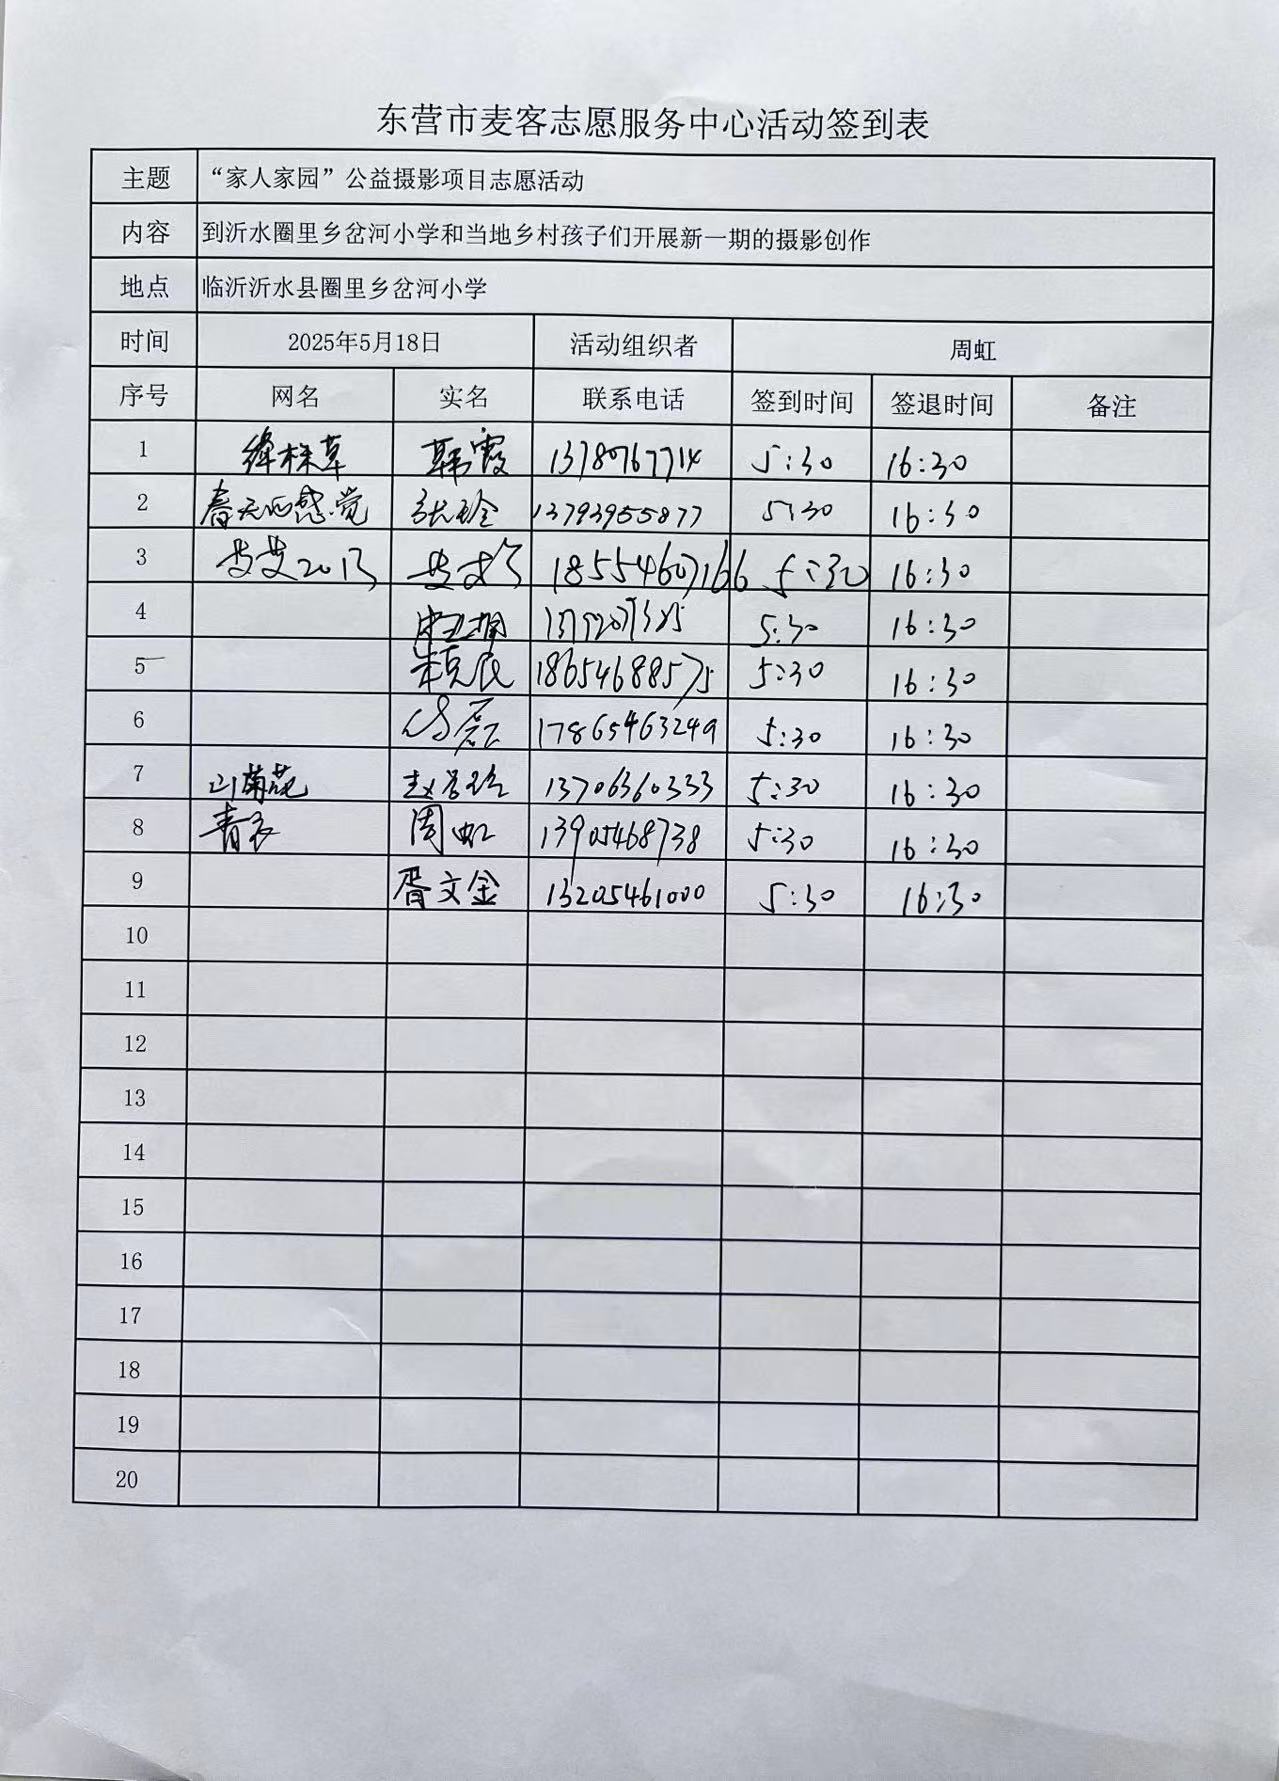 东营市麦客志愿服务中心活动签到表
主题 “家人家园”公益摄影项目志愿活动
内容 到沂水圈里乡岔河小学和当地乡村孩子们开展新一期的摄影创作
地点 临沂沂水县圈里乡岔河小学
时间 2025年5月18日 活动组织者 周虹
序号 网名 实名 联系电话 签到时间 签退时间 备注
1 绛株草 韩霞 13780767714 5:30 16:30
2 春天的感觉 张玲 13793955877 5:30 16:30
3 18554607166 5:30 16:30
4 5:30 16:30
5 18654688575 5:30 16:30
6 17865463249 5:30 16:30
7 山菊花 13706360333 5:30 16:30
8 青衣 周虹 13905468738 5:30 16:30
9 胥文金 13205461000 5:30 16:30
10
11
12
13
14
15
16
17
18
19
20